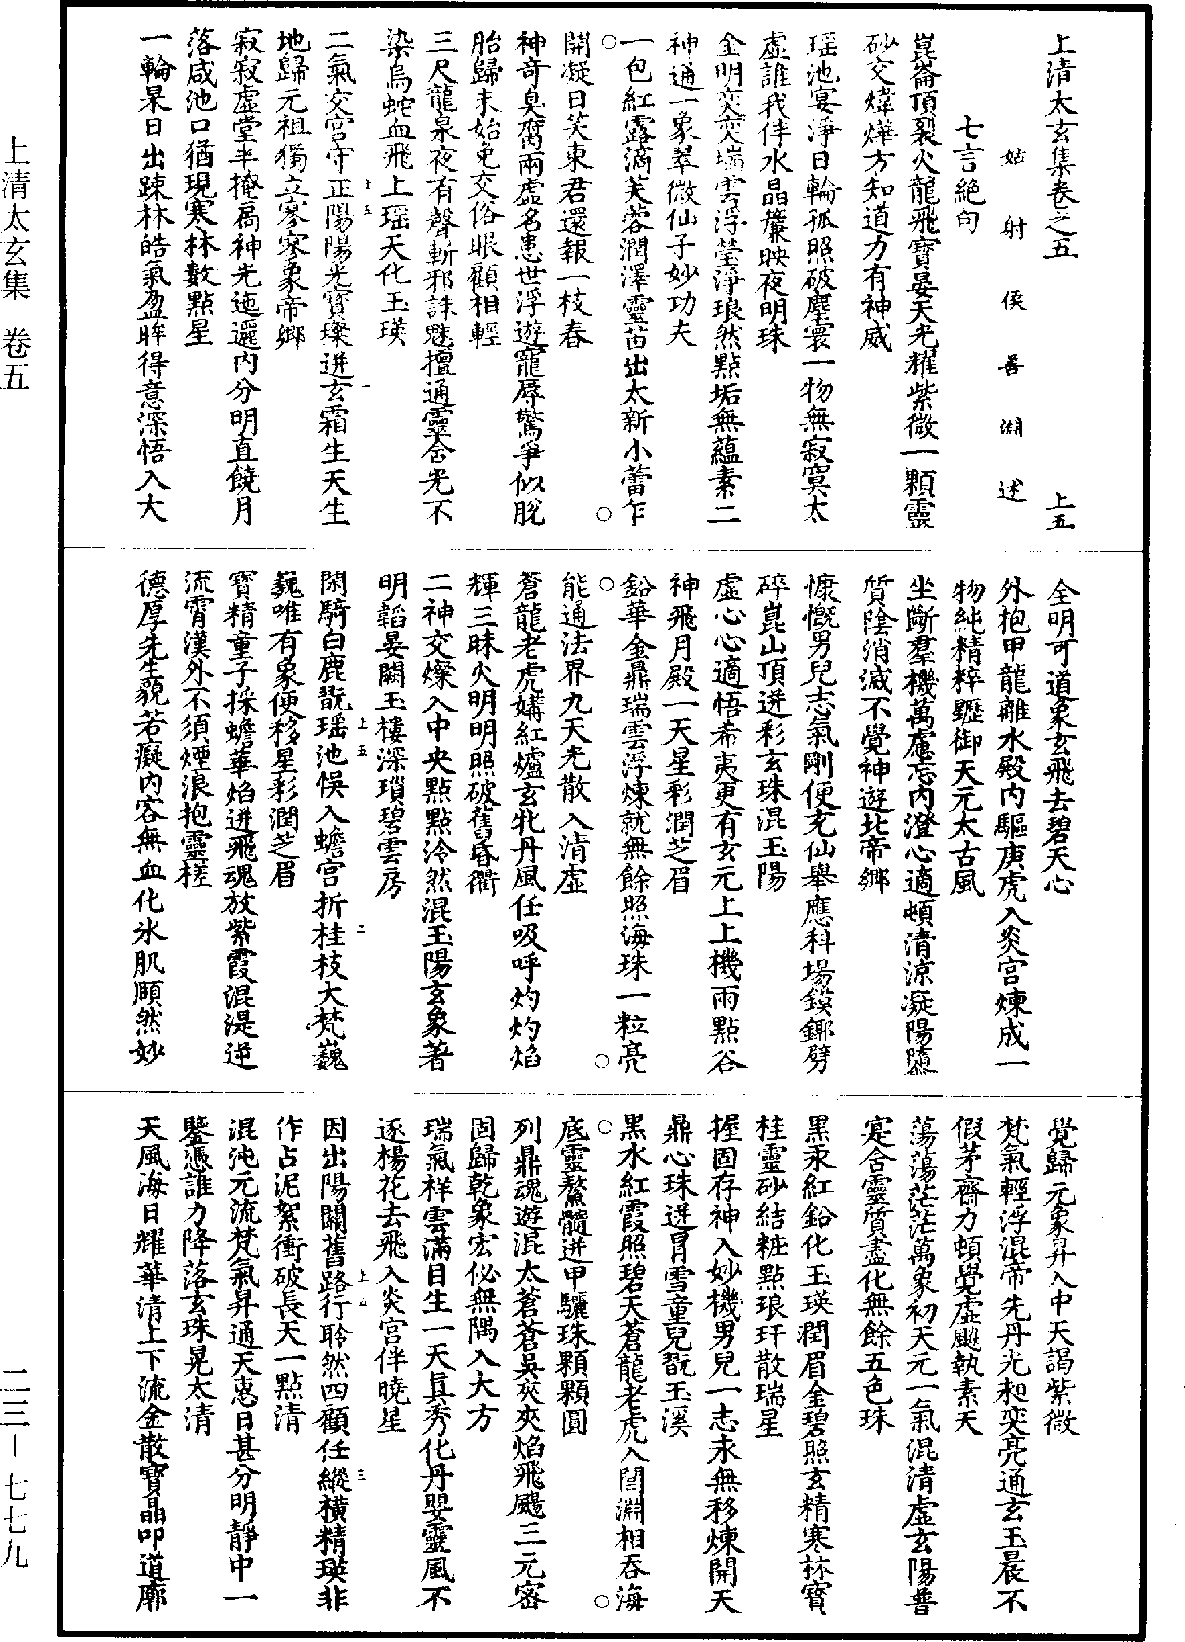 上清太玄集卷之五　上五
姑射侯善淵述
七言絕句
崑崙頂裂火龍飛寶晏天光耀紫微一顆靈
砂交煒燁方知道力有神威
瑶池宴淨日輪孤照破塵寰一物無寂寞太
虛誰我伴水晶簾映夜明珠
金明奕奕瑞雲浮瑩淨琅然點垢無蘊素二
神通一象翠微仙子妙功夫
一包紅露滴芙蓉潤澤靈苗出太新小蕾乍
開凝日笑東君還報一枝春
神竒臭腐兩虛名患世浮遊寵辱驚爭似脫
胎歸未始免交俗眼顧相輕
三尺龍泉夜有聲斬邪誅魅擅通靈含光不
染烏蛇血飛上瑶天化玉瑛
二氣交宮守正陽陽光寶璨迸玄霜生天生
地歸元祖獨立寥寥象帝鄉
寂寂虛堂半掩扃神光迤邐內分明直饒月
落咸池口猶現寒林數點星
一輪杲日出踈林皓氣盈眸得意深悟入大
全明可道象玄飛去碧天心
外抱甲龍離水殿內驅庚虎入炎宮煉成一
物純精粹躔御天元太古風
坐斷羣機萬慮忘內澄心適頓清涼凝陽隳
質陰消滅不覺神遊北帝鄉
慷慨男兒志氣剛便充仙舉應科場鏌鎁劈
碎崑山頂迸彩玄珠混玉陽
虛心心適悟希夷更有玄元上上機雨點谷
神飛月殿一天星彩潤芝眉
鉛華金鼎瑞雲浮煉就無餘照海珠一粒亮
能通法界九天光散入清虛
蒼龍老虎媾紅爐玄牝丹風任吸呼灼灼焰
輝三昧火明明照破舊昏衢
二神交燦入中央點點泠然混玉陽玄象著
明韜晏闕玉樓深瑣碧雲房
閑騎白鹿翫瑶池悞入蟾宮折桂枝大梵巍
巍唯有象便移星彩潤芝眉
寶精童子採蟾華焰迸飛魂放紫霞混湜逆
流霄漢外不須煙浪抱靈槎
德厚先生貌若癡內容無血化氷肌頤然妙
覺歸元象昇入中天謁紫微
梵氣輕浮混帝先丹光赩奕亮通玄玉晨不
假茅齋力頓覺虛颷執素天
蕩蕩茫茫萬象初天元一氣混清虛玄陽普
寔合靈質盡化無餘五色珠
黑汞紅鉛化玉瑛潤眉金碧照玄精寒林寶
桂靈砂結粧點琅玕散瑞星
握固存神入妙機男兒一志永無移煉開天
鼎心珠迸冐雪童兒翫玉溪
黑水紅霞照碧天蒼龍老虎入誾淵相吞海
底靈鰲髓迸甲驪珠顆顆圓
列鼎魂遊混太蒼蒼昊炎炎焰飛颺三元密
固歸乾象宏佖無隅入大方
瑞氣祥雲滿目生一天真秀化丹嬰靈風不
逐楊花去飛入炎宮伴曉星
因出陽關舊路行聆然四顧任縱橫精瑛非
作占泥絮衝破長天一點清
混沌元流梵氣昇通天惠日甚分明靜中一
鑒憑誰力降落玄珠晃太清
天風海日耀華清上下流金散寶晶叩道廓
上清太玄集　卷五
二三－七七九